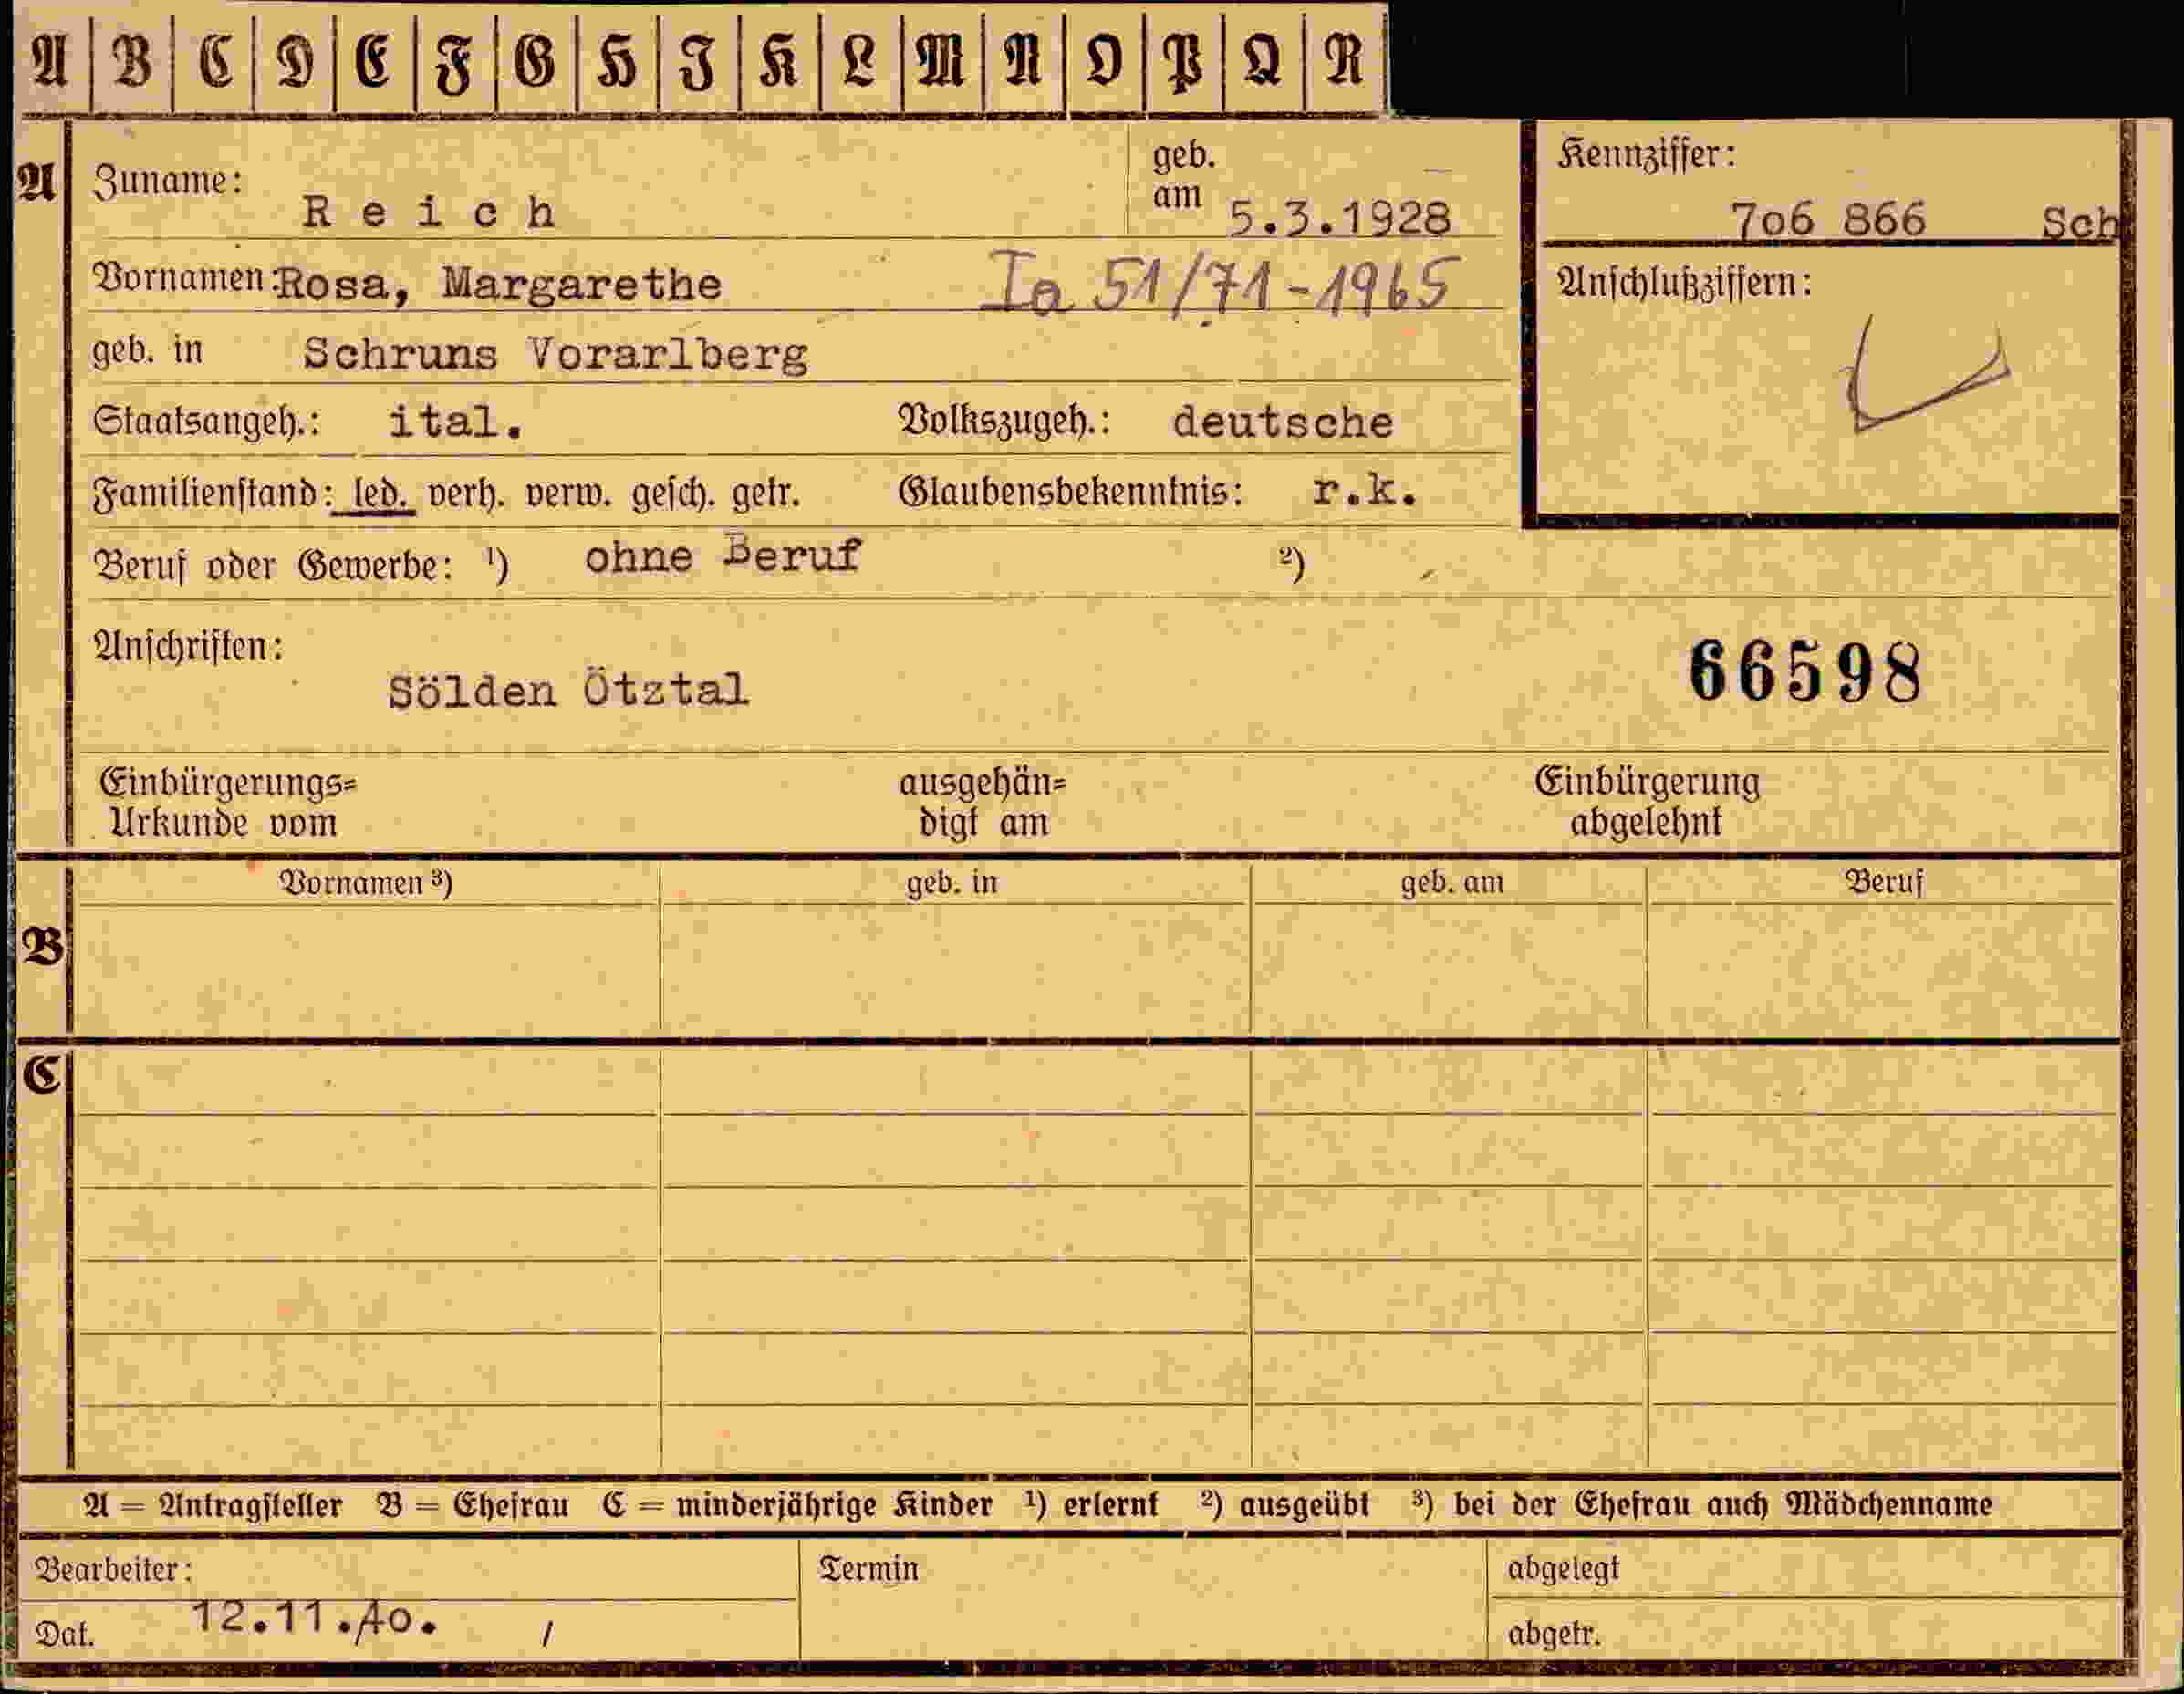 A B C D E F G H J K L M N O P Q R
A Zuname: Reich geb. am 5.3.1928
Kennziffer: 706 866 Sch
Vornamen: Rosa, Margarethe Ia 51/71-1965
Anschlußziffern:
geb. in Schruns Vorarlberg
Staatsangeh.: ital. Volkszugeh.: deutsche
Familienstand: led. verh. verw. gesch. getr. Glaubensbekenntnis: r.k.
Beruf oder Gewerbe: ¹) ohne Beruf ²)
Anschriften:
Sölden Ötztal 66598
Einbürgerungs= ausgehän= Einbürgerung
Urkunde vom digt am abgelehnt
Vornamen ³) geb. in geb. am Beruf
B
C
A = Antragsteller B = Ehefrau C = minderjährige Kinder ¹) erlernt ²) ausgeübt ³) bei der Ehefrau auch Mädchenname
Bearbeiter: Termin abgelegt
Dat. 12.11.40. / abgetr.